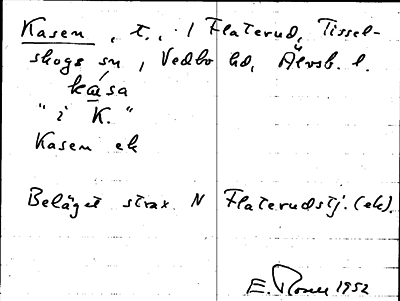 Kasen, t., i Flaterud, Tissel-
skogs sn, Vedbo hd, Älvsb. l.
kása
"i K."
Kasen ek
Beläget strax N Flaterudstj. (ek).
E. Rosell 1952